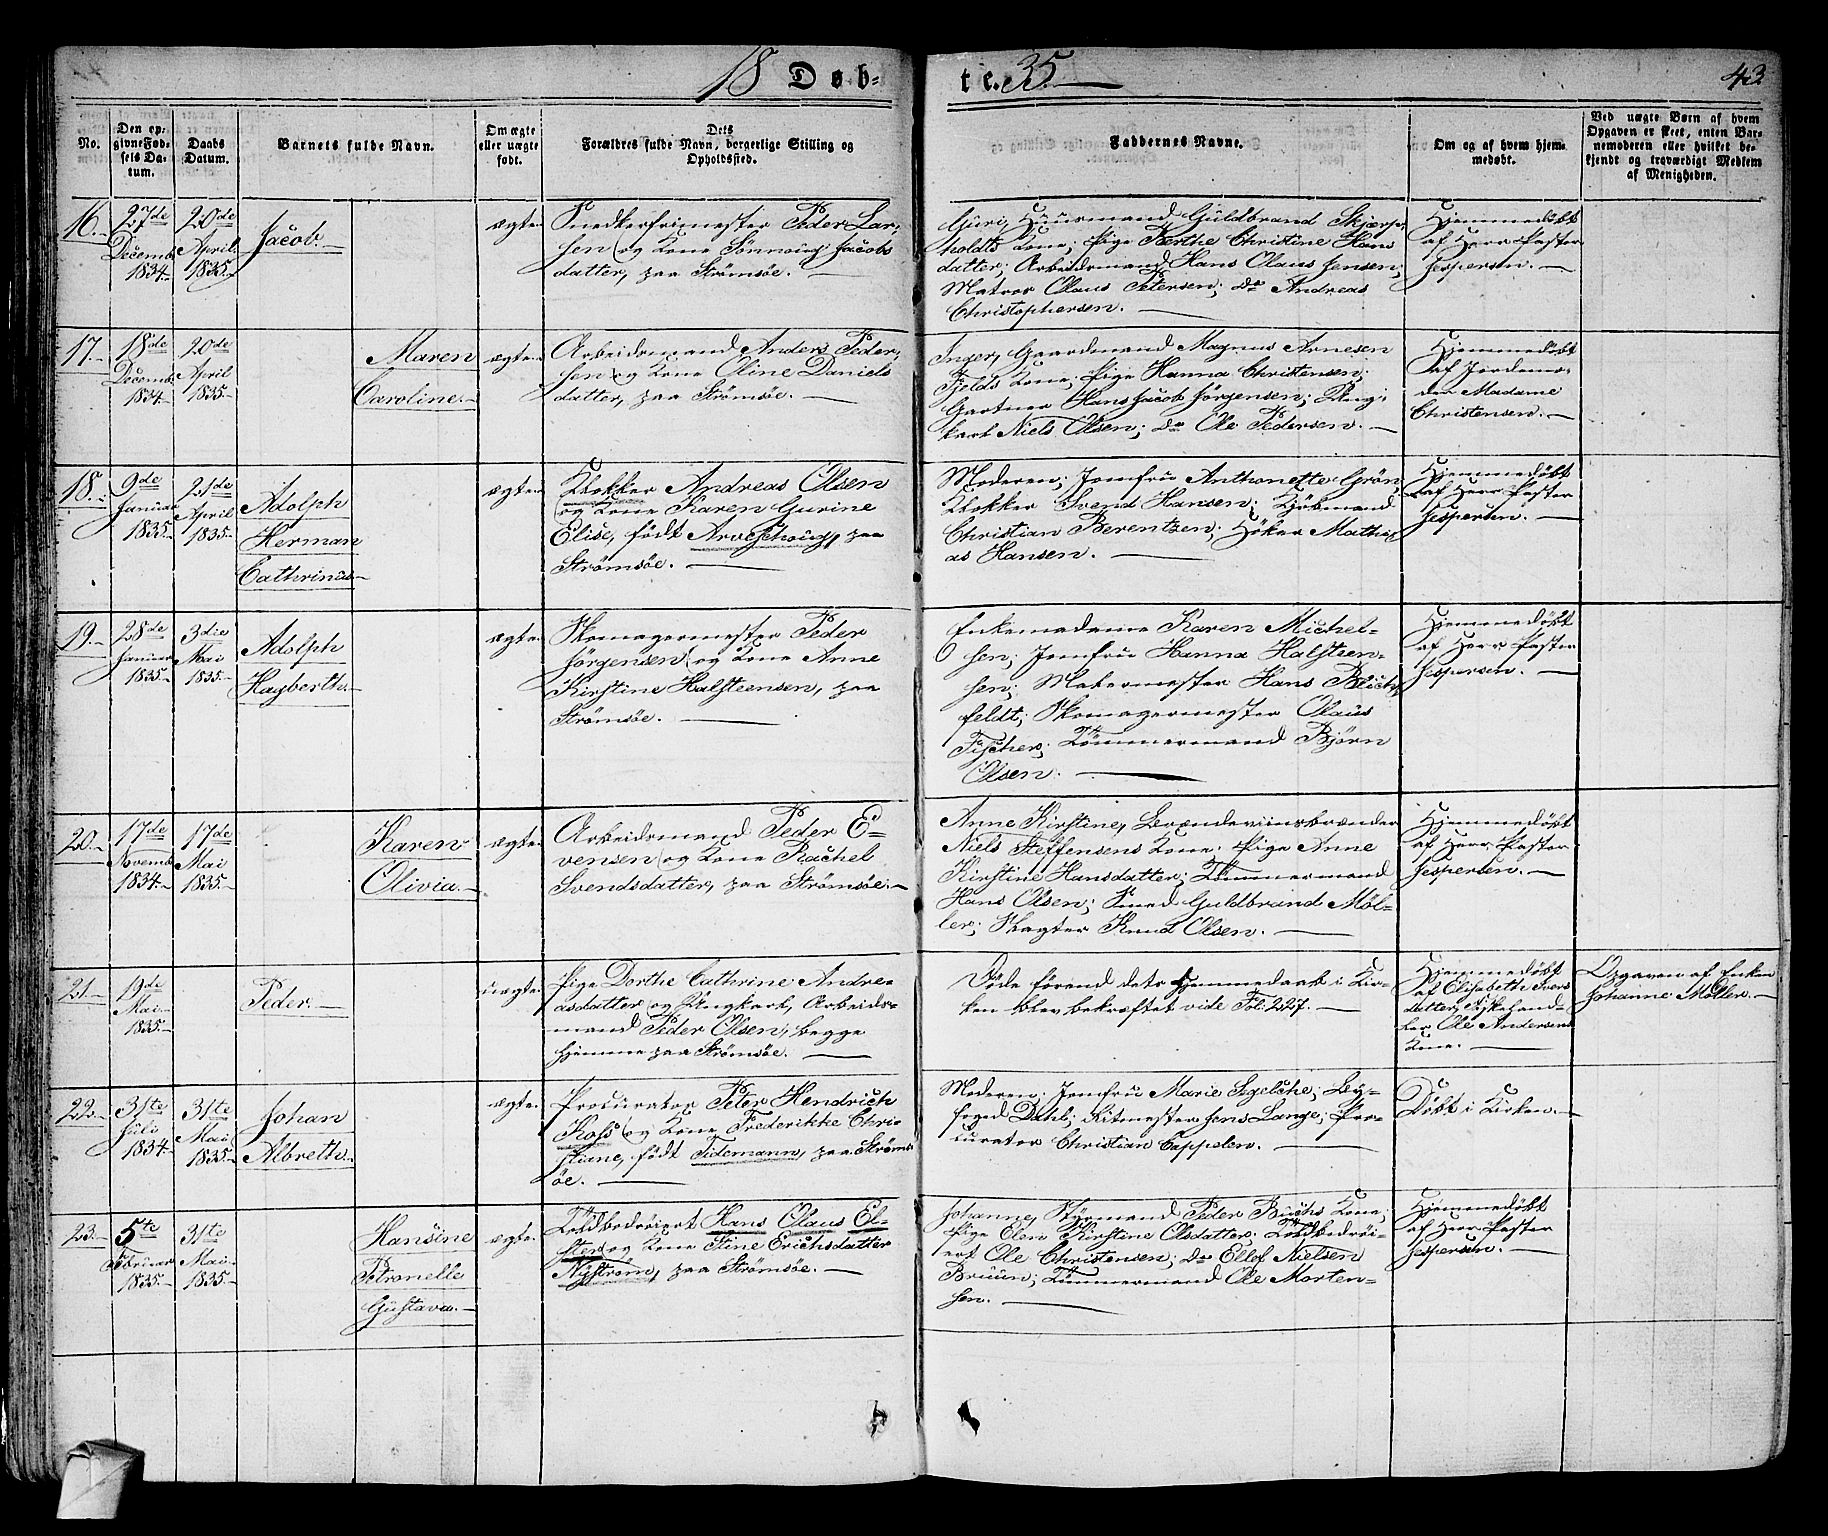 18 Døb-
te. 35.
43
No.
Den op-
givne Fød-
sels Da-
tum.
Daabs
Datum.
Barnets fulde Navn.
Om ægte
eller uægte
født.
Dets
Forældres fulde Navn, borgerlige Stilling og
Opholdssted.
Faddernes Navne.
Om og af hvem hjem-
medøbt.
Ved uægte Børn af hvem
Opgaven er skeet, enten Bar-
nemoderen eller hvilket be-
kjendt og troværdigt Medlem
af Menigheden.
16.
27de
Decemb.
1834.
20de
April
1835.
Jacob.
ægte
Snedkerfrimester Peder Lar-
sen og Kone Jacobs
datter, paa Strømsøe.
Guri, Huusmand Guldbrand Skjærp-
holdts Kone; Pige Berthe Christine Hans
datter; Arbeidsmand Hans Olaus Jensen;
Matros Olaus Petersen; do Andreas
Christophersen.
Hjemmedøbt
af Herr Pastor
Jespersen.
17.
18de
Decemb.
1834
20de
April
1835.
Maren
Caroline.
ægte.
Arbeidsmand Anders Peder-
sen og Kone Oline Daniels
datter, paa Strømsøe.
Inger, Gaardmand Magnus Arnesen
Fjelds Kone; Pige Hanna Christensen;
Gartner Hans Jacob Jörgensen; Ung-
karl Niels Olsen; do Ole Pedersen.
Hjemmedøbt
af Jordemo-
der Madame
Christensen.
18.
9de
Januar
1835.
21de
April
1835.
Adolph
Herman
Cathrinus
ægte
Klokker Andreas Olsen
og Kone Karen Gurine
Elise, født paa
Strømsøe.
Moderen; Jomfru Anthonette Grøn,
Klokker Svend Hansen; Kjöbmand
Christian Berentzen; Höker Mathi-
as Hansen.
Hjemmedøbt
af Herr Pastor
Jespersen.
19.
28de
Januar
1835.
3die
Mai
1835.
Adolph
Hagberth
ægte.
Skomagermester Peder
Jörgensen og Kone Anne
Kirstine Halsteensen, paa
Strømsøe.
Enkemadame Karen Michel-
sen; Jomfru Hanna Halsteen-
sen; Malermester Hans Blich-
feldt; Skomagermester Olaus
Fischer; Tömmermand Björn
Olsen.
Hjemmedøbt
af Herr Pastor
Jespersen.
20.
17de
Novemb.
1834.
17de
Mai
1835.
Karen
Olivia.
ægte.
Arbeidsmand Peder E-
vensen og Kone Rachel
Svendsdatter, paa Strømsøe.
Anne Kirstine, Brændeviinsbrænder
Niels Steffensens Kone; Pige Anne
Kirstine Hansdatter; Tömmermand
Hans Olsen; Smed Guldbrand Möl-
ler; Slagter Knud Olsen.
Hjemmedøbt
af Herr Pastor
Jespersen.
21.
19de
Mai
1835.
Peder
uægte
Pige Dorthe Cathrine Andre-
asdatter og Ungkarl, Arbeids-
mand Peder Olsen, begge
hjemme paa Strømsøe.
Døde førend dets Hjemmedaab i Kir-
ken blev bekræftet vide Fol. 227.
Hjemmedøbt
af Elisabeth Ivers
datter, Fiskehand-
ler Ole Andersens
Kone.
Opgaven af Enken
Johanne Möller.
22.
31te
Juli
1834.
31te
Mai
1835.
Johan
Albreth.
ægte.
Procurator Peter Hendrich
Koss og Kone Frederikke Chri-
stiane, født Tidemann, paa Strøms-
øe.
Moderen; Jomfru Marie Leg-
foged Dahl; Ritmester Jens Lange; Pro-
curator Christian Cappelen.
Døbt i Kirken.
23.
5te
Februar
1835.
31te
Mai
1835.
Hansine
Petronelle
Gustava.
ægte.
Toldbetjent Hans Olaus El-
ster og Kone Stine Erichsdatter
Nystrøm, paa Strømsøe.
Johanne, Styrmand Peder Buchs Kone;
Pige Elen Kirstine Olsdatter;
Ole Christensen; do Ellof Nielsen
Bruun; Tömmermand Ole Morten-
sen.
Hjemmedøbt
af Herr Pastor
Jespersen.